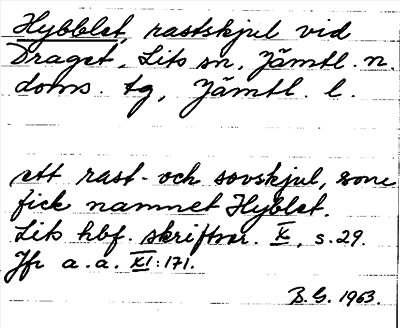 Hybblet, rastskjul vid
Draget, Lits sn, Jämtl. n.
doms. tg, Jämtl. l.
ett rast- och sovskjul, som
fick namnet Hyblet.
Lits hbf. skriftser. X, s. 29.
Jfr a.a. XI: 171.
B.G. 1963.